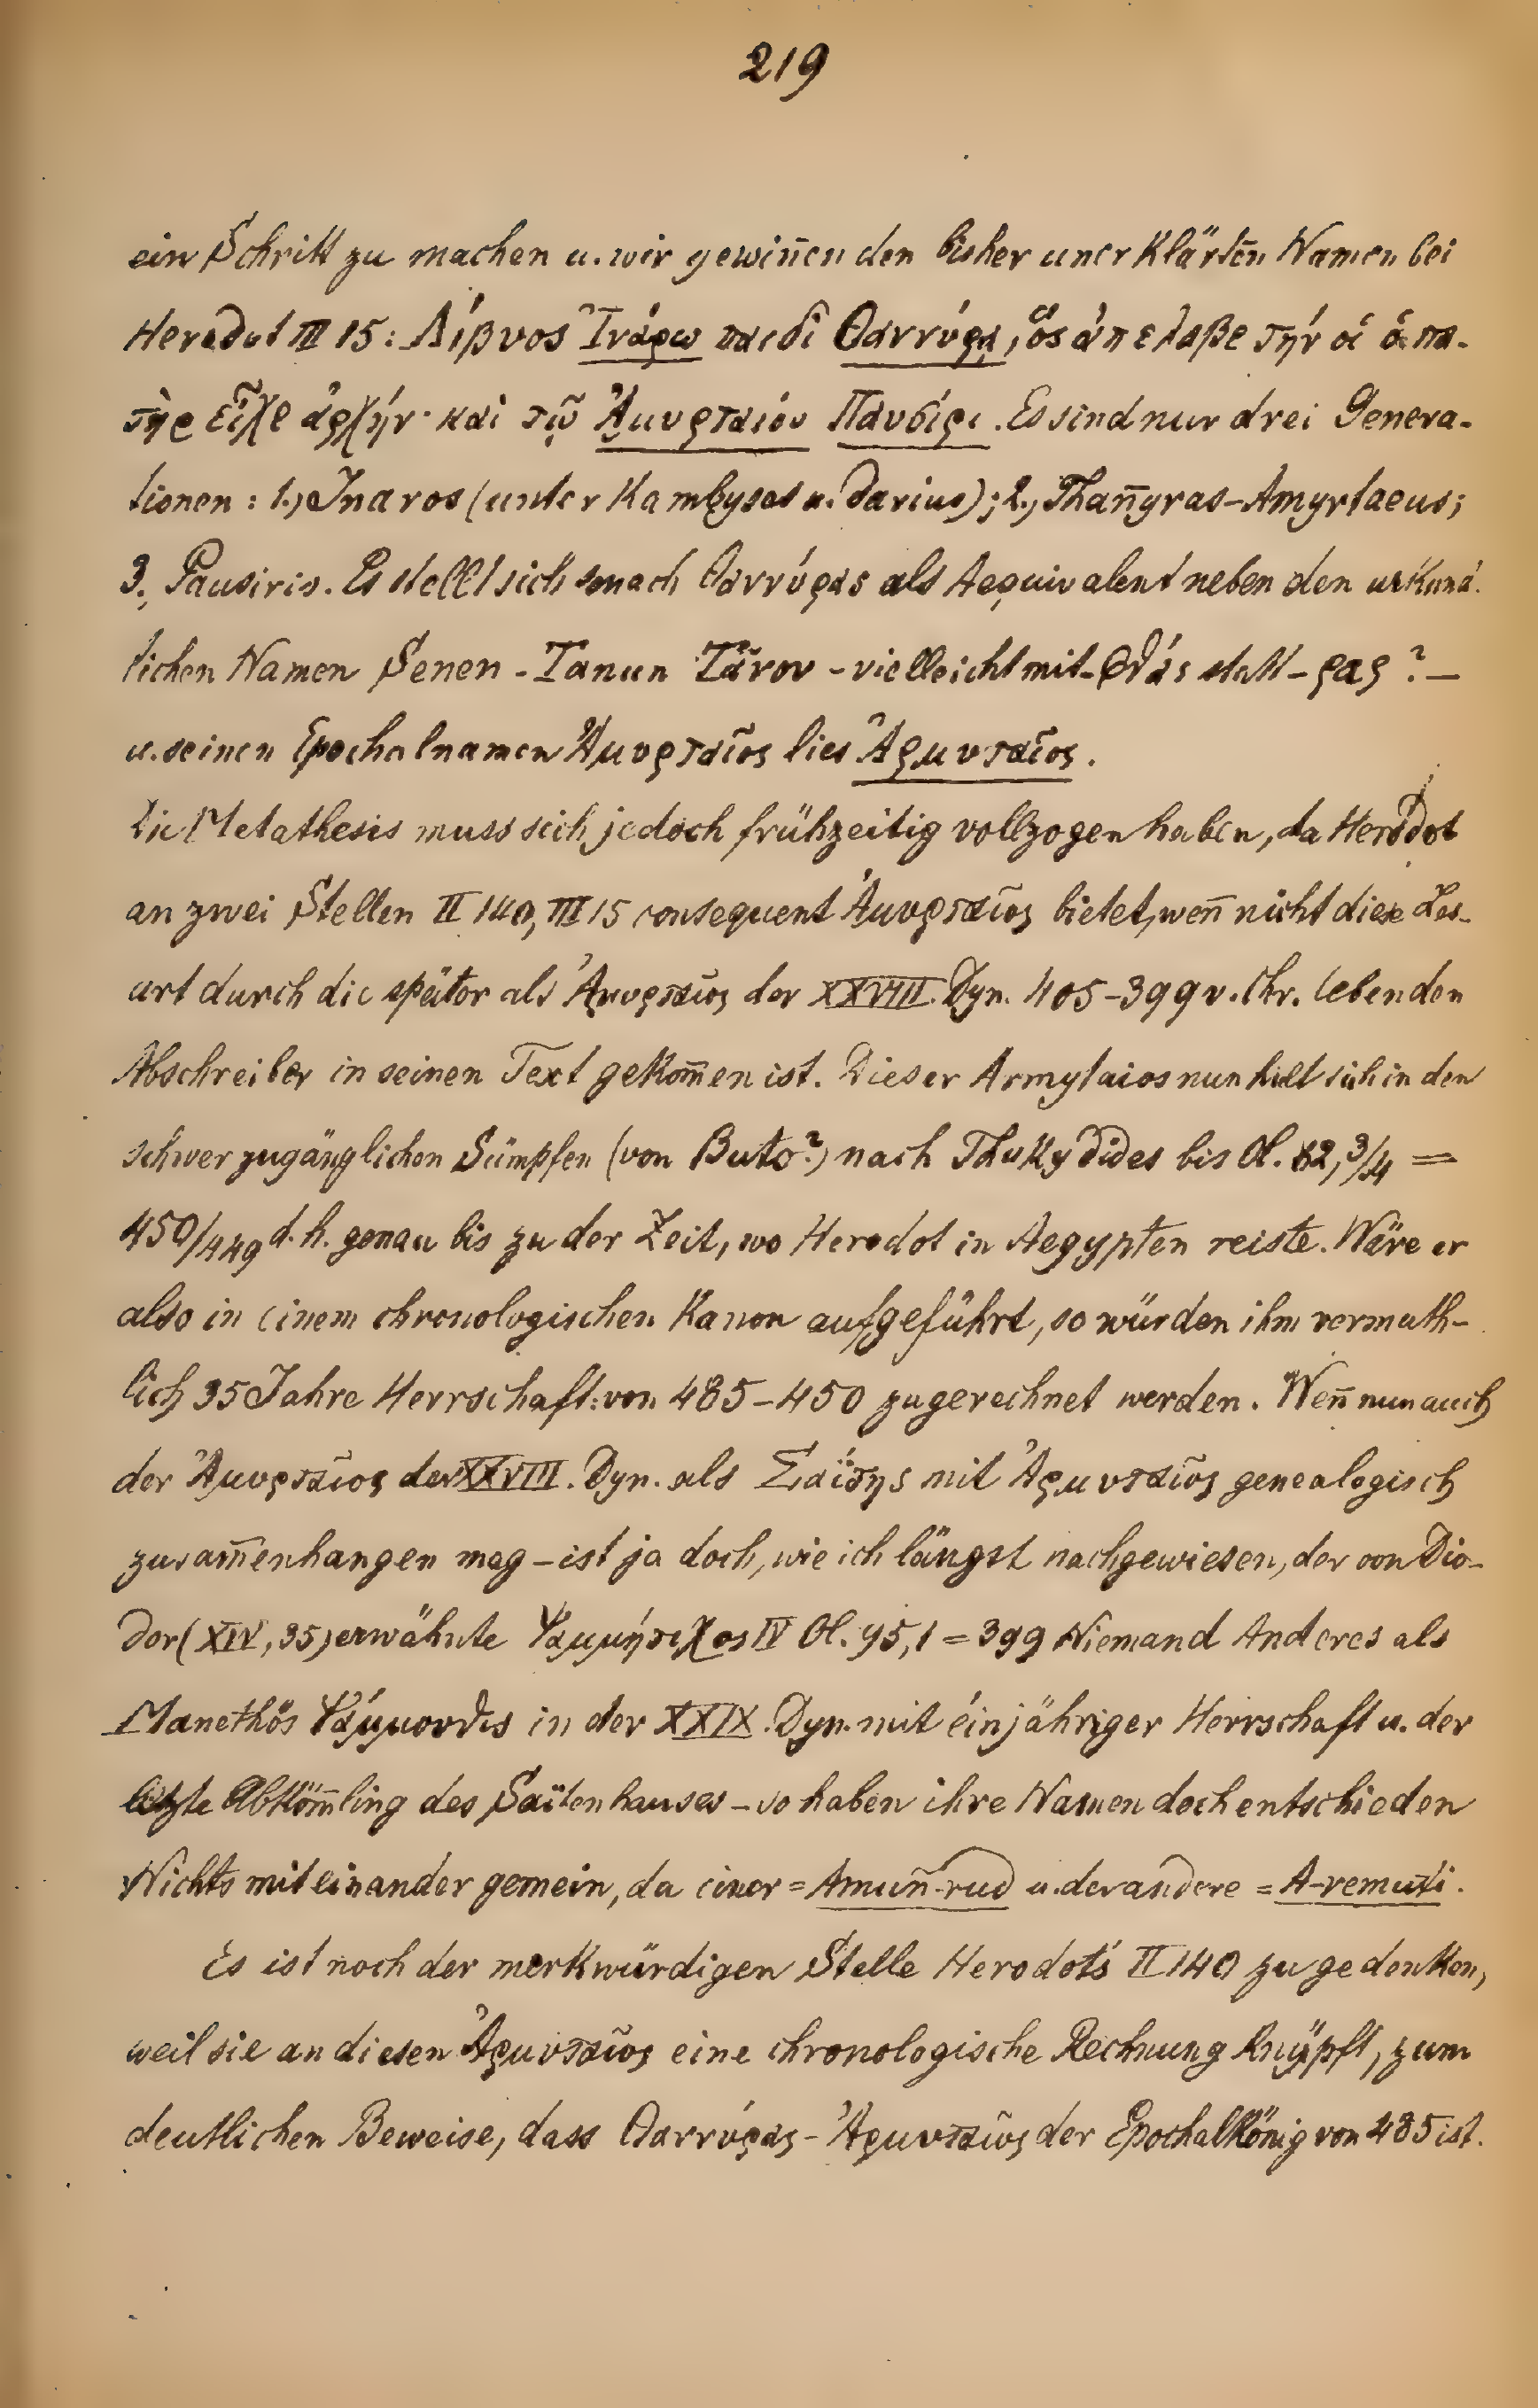 219
ein Schritt zu machen u. wir gewin̄en den bisher unerklärten̄ Namen bei
Herodot III 15: Λίβυος Ἰνάρω παιδὶ Θαννύρᾳ, ὃς ἀπέλαβε τήν οἱ ὁ πα-
τὴρ εἶχε ἀρχήν· καὶ τῷ Ἀμυρταίου Παυσίρι. Es sind nur drei Genera-
tionen: 1., Inaros (unter Kambyses u. Darius); 2., Than̄yras-Amyrtaeus;
3., Pausiris. Es stellt sich sonach Θαννύρας als Aequivalent neben den urkund-
lichen Namen Senen-Tanun Τάνον - vielleicht mit -θάς statt -ρας? -
u. seinen Epochalnamen Ἀμυρταῖος lies Ἀρμυταῖος.
Die Metathesis muss sich jedoch frühzeitig vollzogen haben, da Herodot
an zwei Stellen II 140, III 15 consequent Ἀμυρταῖος bietet, wen̄ nicht diese Les-
art durch die später als Ἀμυρταῖος der XXVIII. Dyn. 405-399 v. Chr. lebenden
Abschreiber in seinen Text gekom̄en ist. Dieser Armytaios nun hielt sich in den
schwer zugänglichen Sümpfen (von Buto?) nach Thukydides bis Ol. 82,3/4 =
450/449 d. h. genau bis zu der Zeit, wo Herodot in Aegypten reiste. Wäre er
also in einem chronologischen Kanon aufgeführt, so würden ihm vermuth-
lich 35 Jahre Herrschaft: von 485-450 zugerechnet werden. Wen̄ nun auch
der Ἀμυρταῖος der XXVIII. Dyn. als Σαΐτης mit Ἀρμυταῖος genealogisch
zusam̄enhangen mag - ist ja doch, wie ich längst nachgewiesen, der von Dio-
dor (XIV, 35) erwähnte Ψαμμήτιχος IV Ol. 95,1 = 399 Niemand Anderes als
Manethôs Ψάμμουθις in der XXIX. Dyn. mit einjähriger Herrschaft u. der
letzte Abköm̄ling des Saïtenhauses - so haben ihre Namen doch entschieden
Nichts miteinander gemein, da einer = Amun̄-rud u. der andere = A-remuti.
Es ist noch der merkwürdigen Stelle Herodot's II 140 zu gedenken,
weil sie an diesen Ἀρμυταῖος eine chronologische Rechnung knüpft, zum
deutlichen Beweise, dass Θαννύρας - Ἀρμυταῖος der Epochalkönig von 485 ist.